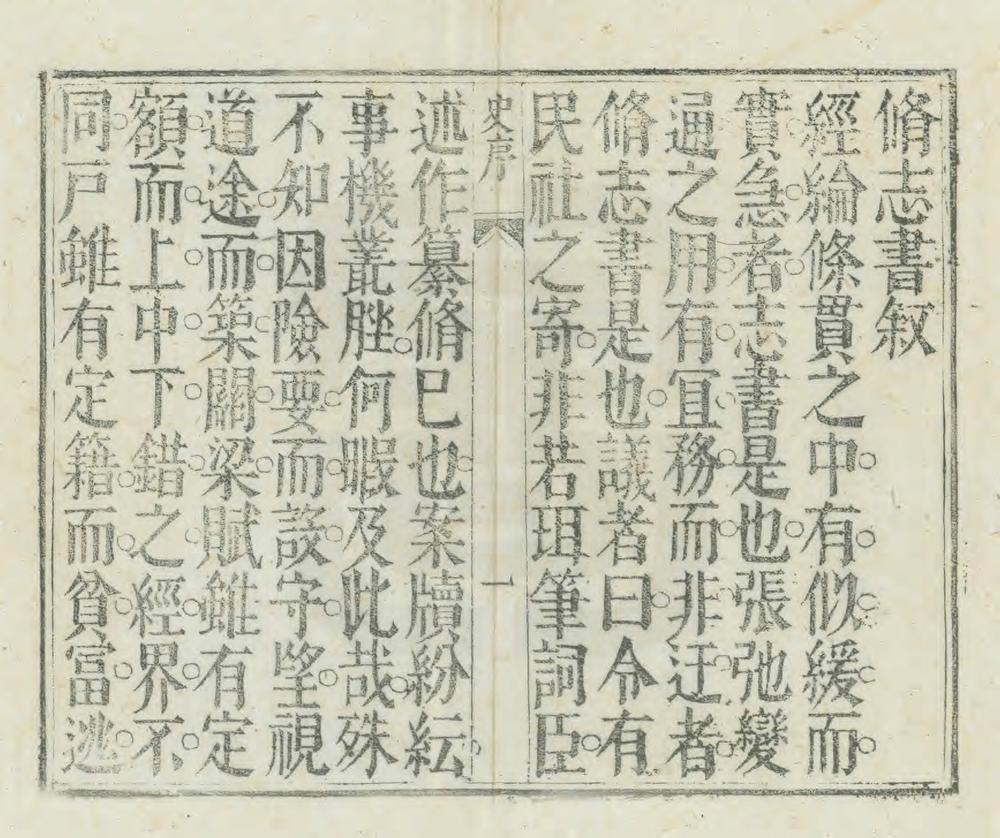 脩志書叙
經綸條貫之中有似緩而
實急者志書是也張弛變
通之用有宜務而非迂者
脩志書是也議者曰令有
民社之寄非若珥筆詞臣
史序
一
述作纂脩已也案牘紛紜
事機叢脞何暇及此哉殊
不知因險要而設守望視
道途而築關梁賦雖有定
額而上中下錯之經界不
同戸雖有定籍而貧富逃